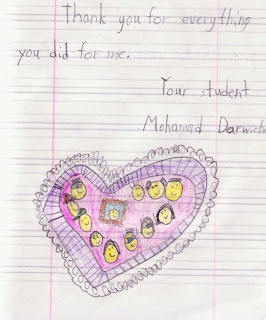 Thank you for everything
you did for me.
Your student
Mohamad Darwich